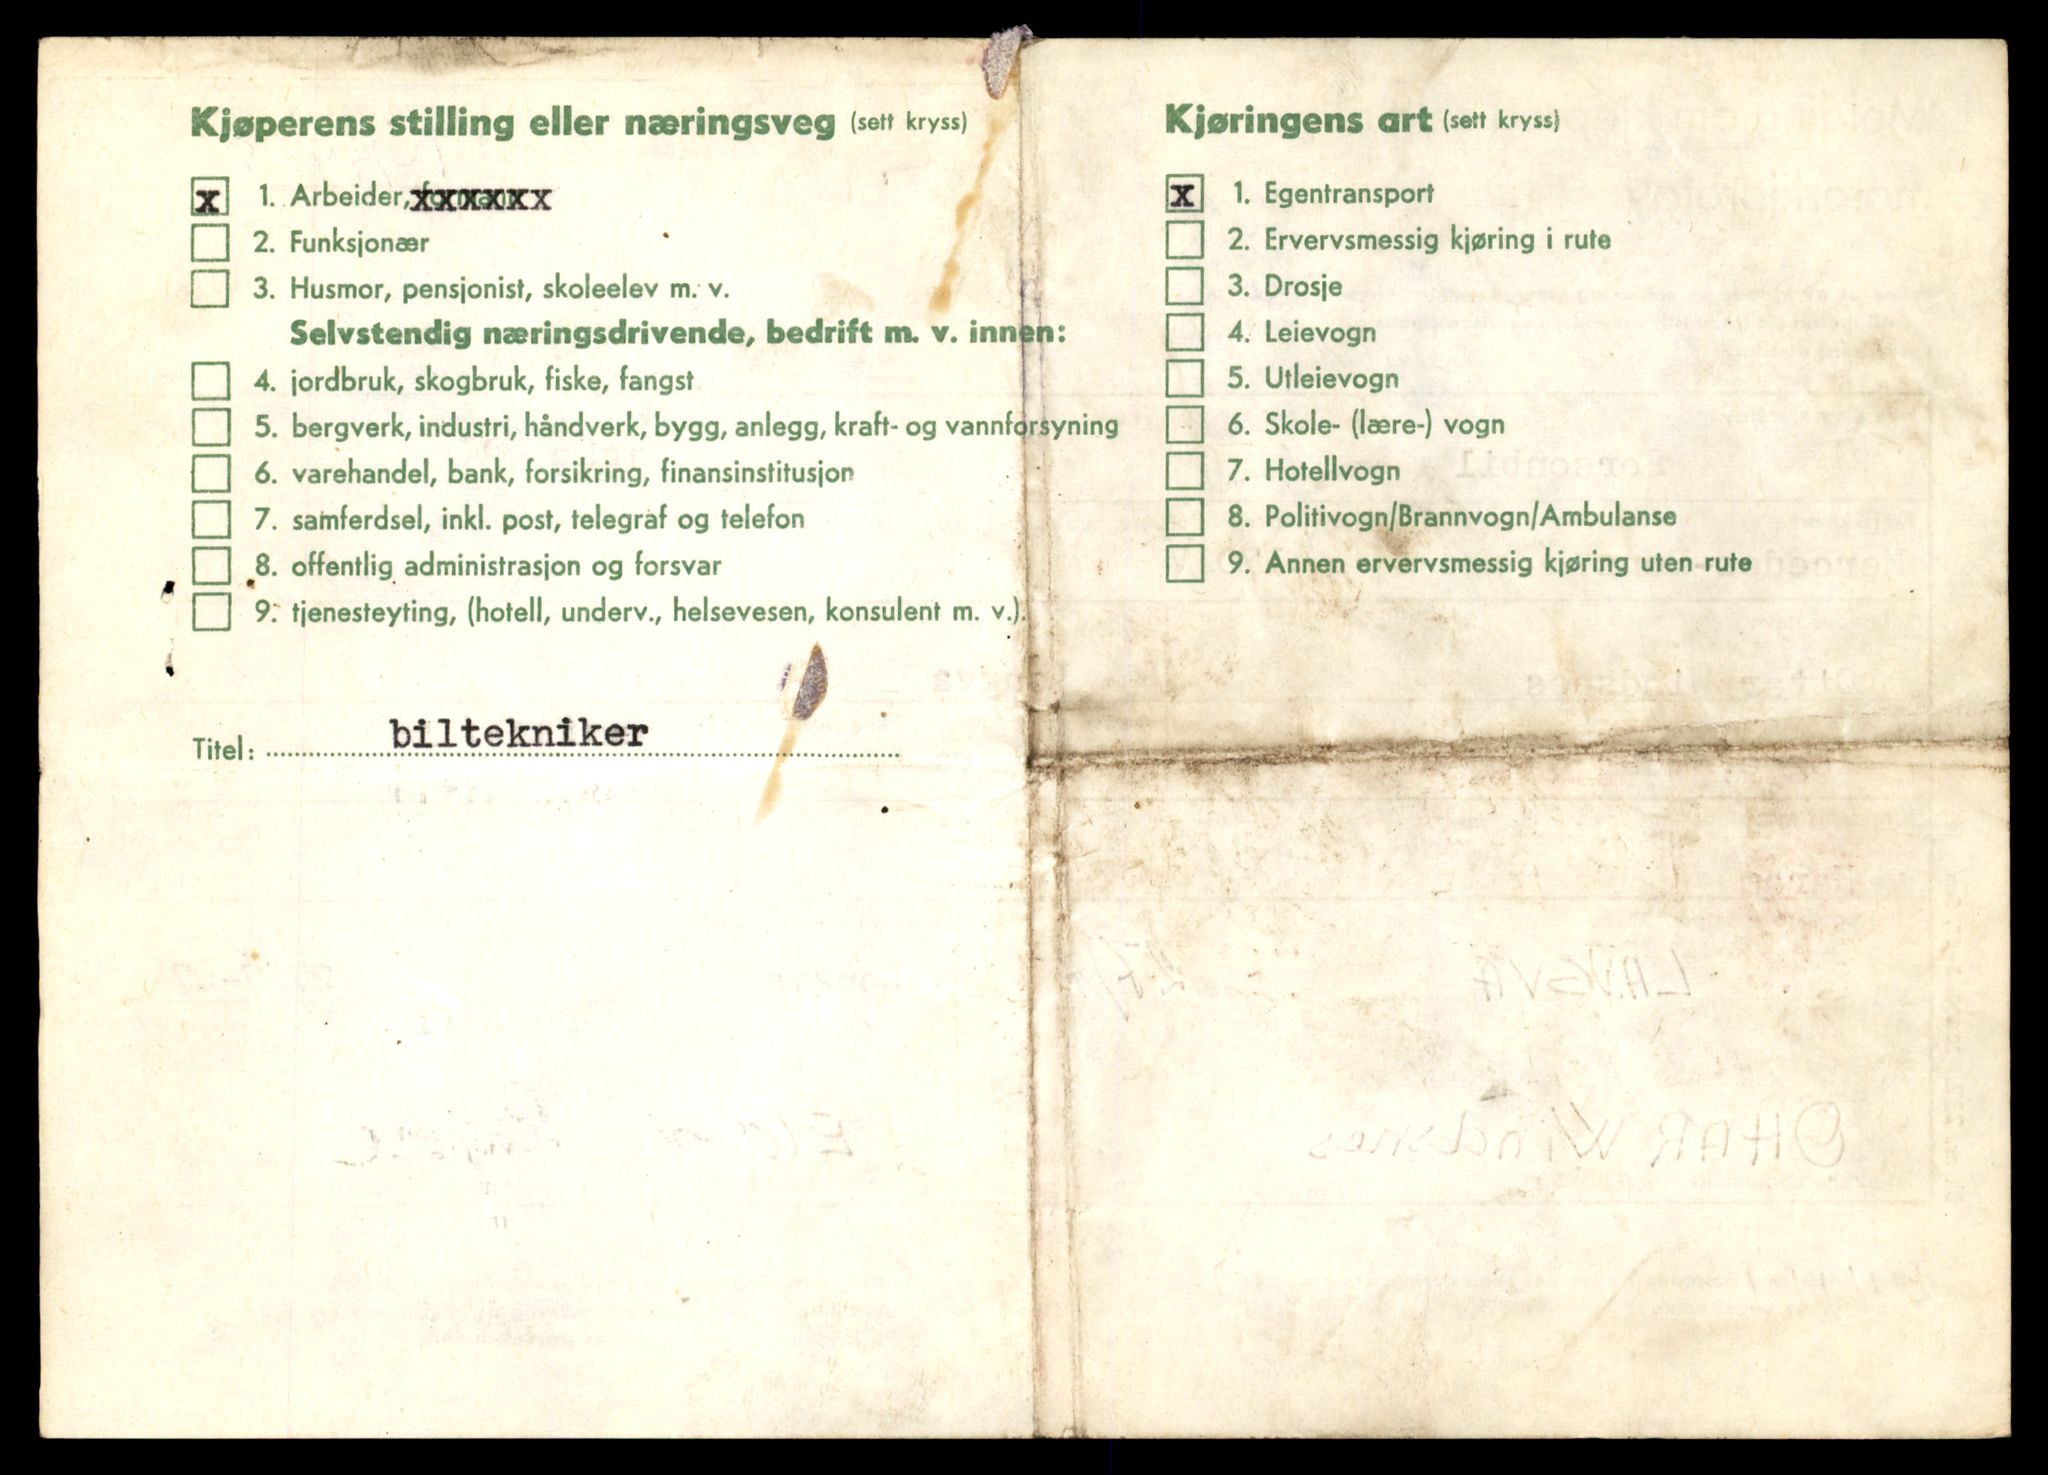 Kjøperens stilling eller næringsveg (sett kryss)
x 1. Arbeider, xxxxxx
2. Funksjonær
3. Husmor, pensjonist, skoleelev m. v.
Selvstendig næringsdrivende, bedrift m. v. innen:
4. jordbruk, skogbruk, fiske, fangst
5. bergverk, industri, håndverk, bygg, anlegg, kraft- og vannforsyning
6. varehandel, bank, forsikring, finansinstitusjon
7. samferdsel, inkl. post, telegraf og telefon
8. offentlig administrasjon og forsvar
9. tjenesteyting, (hotell, underv., helsevesen, konsulent m. v.).
Titel: biltekniker
Kjøringens art (sett kryss)
x 1. Egentransport
2. Ervervsmessig kjøring i rute
3. Drosje
4. Leievogn
5. Utleievogn
6. Skole- (lære-) vogn
7. Hotellvogn
8. Politivogn/Brannvogn/Ambulanse
9. Annen ervervsmessig kjøring uten rute